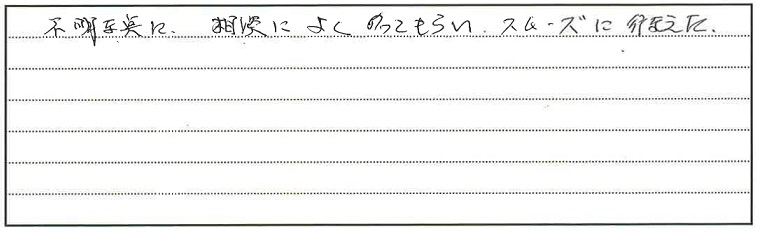 不明な点に、相談によくのってもらい、スムーズに行なえた。